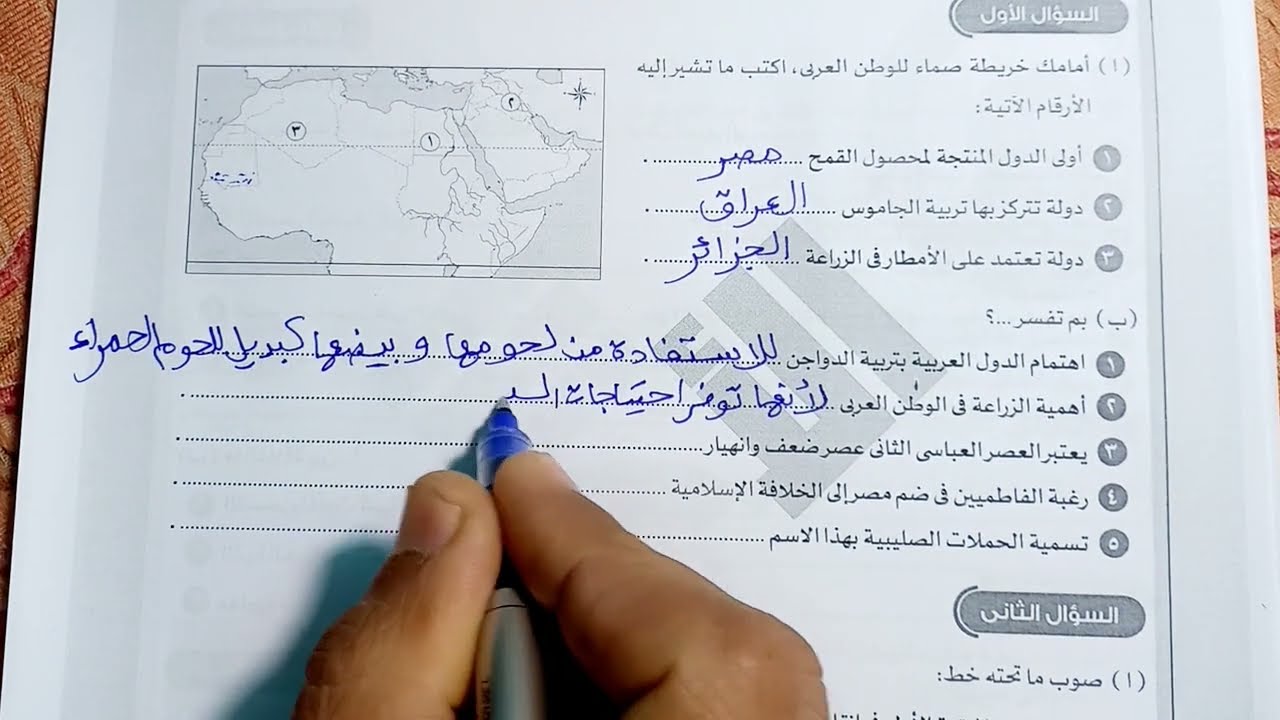 السؤال الأول
(أ) أمامك خريطة صماء للوطن العربى، اكتب ما تشير إليه
الأرقام الآتية:
١ أولى الدول المنتجة لمحصول القمح مصر .
٢ دولة تتركز بها تربية الجاموس العراق .
٣ دولة تعتمد على الأمطار فى الزراعة الجزائر .
١
٢
٣
(ب) بم تفسر ...؟
١ اهتمام الدول العربية بتربية الدواجن للاستفادة من لحومها و بيضها كبديل للحوم الحمراء
٢ أهمية الزراعة فى الوطن العربى لأنها توفر احتياجات .
٣ يعتبر العصر العباسى الثانى عصر ضعف وانهيار .
٤ رغبة الفاطميين فى ضم مصر إلى الخلافة الإسلامية .
٥ تسمية الحملات الصليبية بهذا الاسم .
السؤال الثانى
(أ) صوب ما تحته خط: